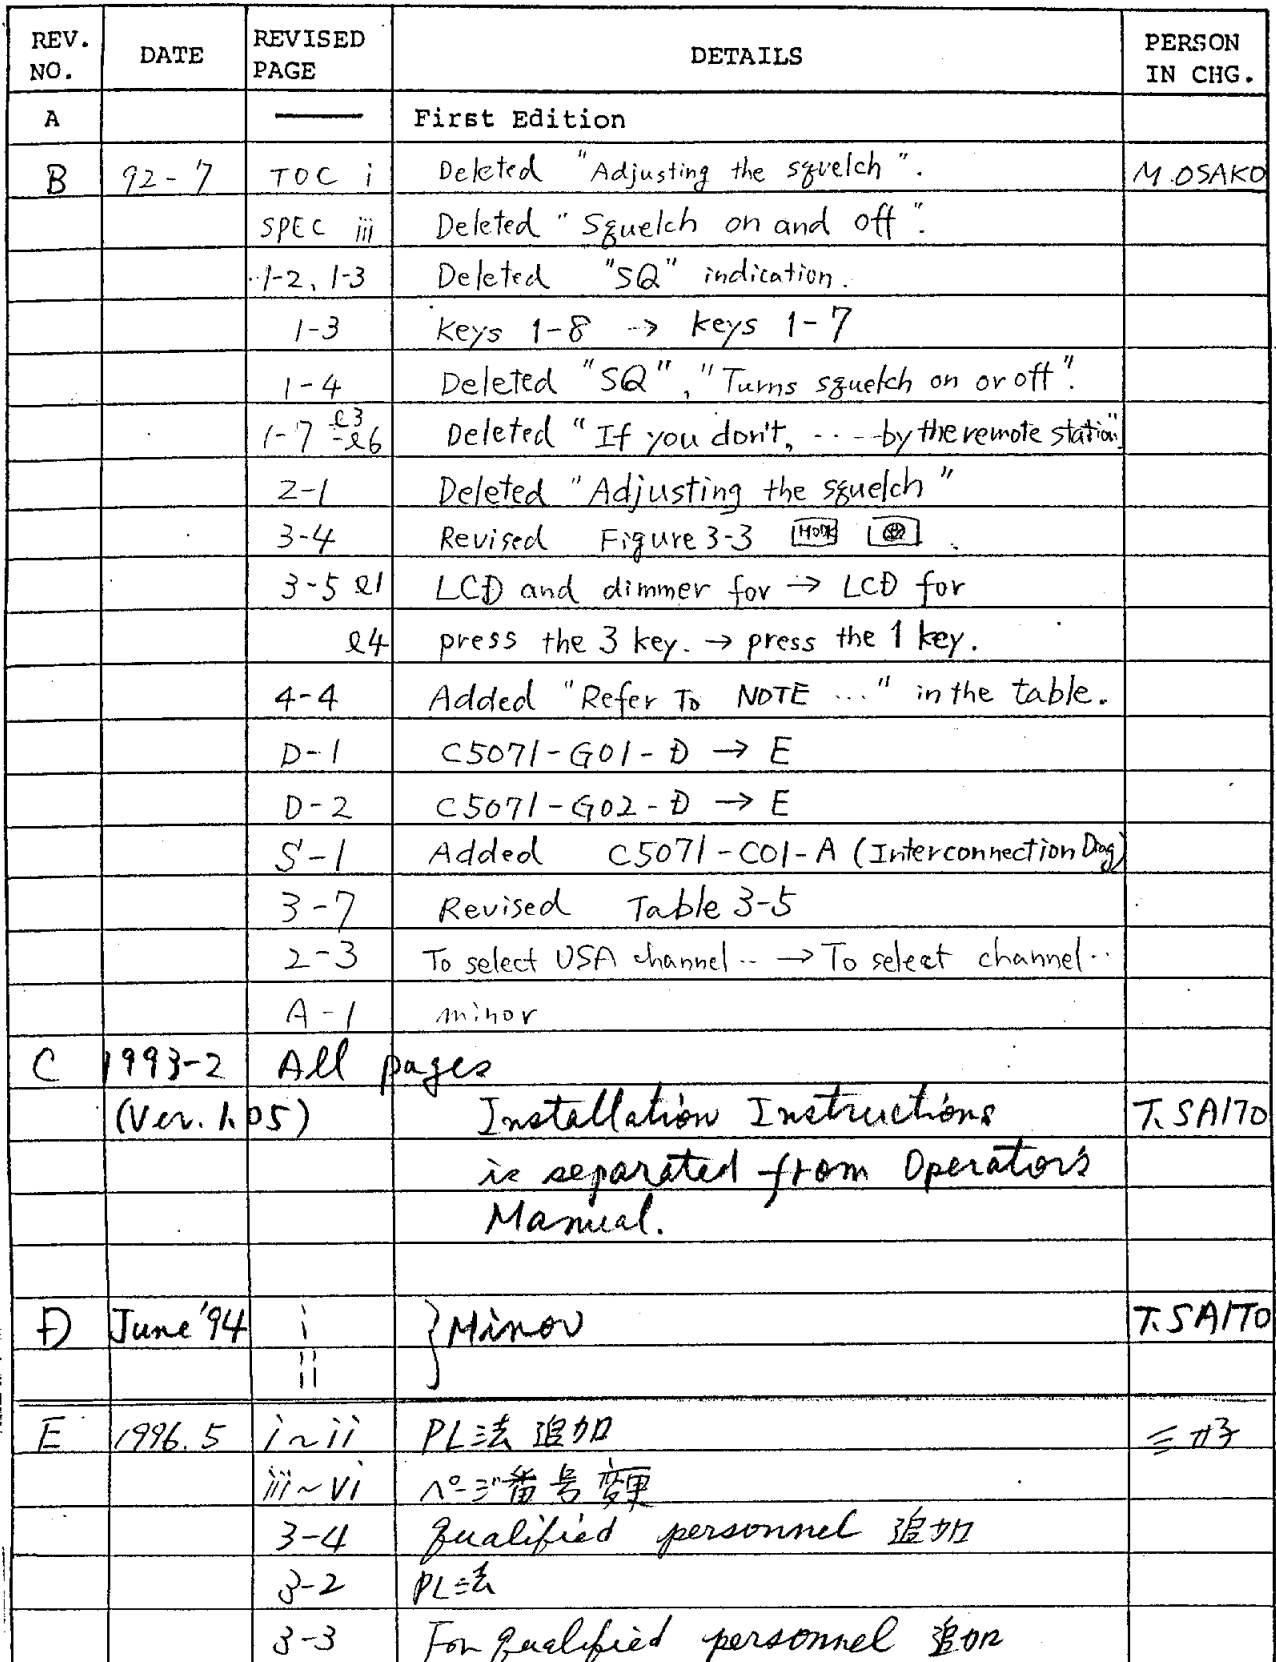 REV. NO. DATE REVISED PAGE DETAILS PERSON IN CHG.
A —— First Edition
B 92-7 TOC i Deleted "Adjusting the squelch". M.OSAKO
SPEC iii Deleted "Squelch on and off".
1-2, 1-3 Deleted "SQ" indication.
1-3 keys 1-8 → keys 1-7
1-4 Deleted "SQ", "Turns squelch on or off".
1-7 ℓ3-ℓ6 Deleted "If you don't, ---- by the remote station"
2-1 Deleted "Adjusting the squelch"
3-4 Revised Figure 3-3
3-5 ℓ1 LCD and dimmer for → LCD for
ℓ4 press the 3 key. → press the 1 key.
4-4 Added "Refer To NOTE ..." in the table.
D-1 C5071-G01-D → E
D-2 C5071-G02-D → E
S-1 Added C5071-C01-A (Interconnection Diag)
3-7 Revised Table 3-5
2-3 To select USA channel.. → To select channel..
A-1 minor
C 1993-2 All pages
(Ver. 1.05) Installation Instructions T. SAITO
is separated from Operator's
Manual.
D June '94 i } Minor T. SAITO
ii
E 1996.5 i~ii PL法 追加 三好
iii~vi ページ番号変更
3-4 qualified personnel 追加
3-2 PL法
3-3 For qualified personnel 追加